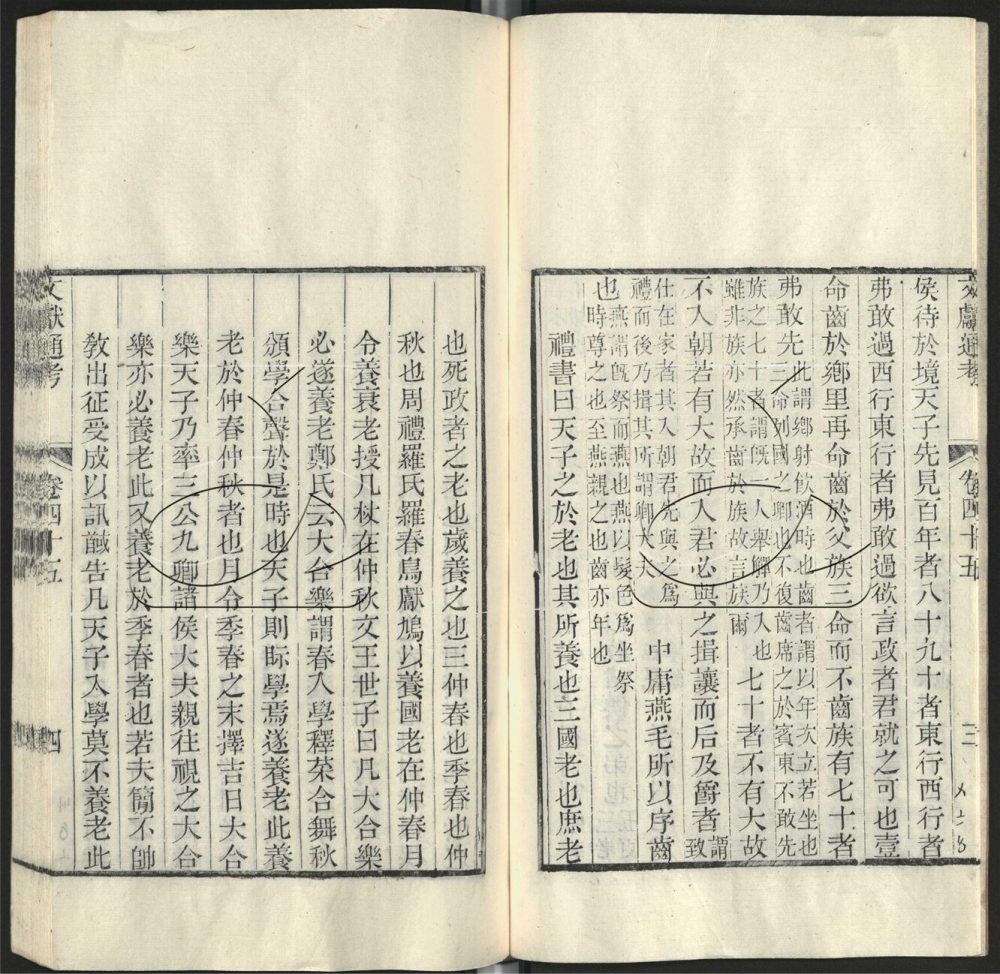 文獻通考
卷四十五
三
侯待於境天子先見百年者八十九十者東行西行者
弗敢過西行東行者弗敢過欲言政者君就之可也壹
命齒於鄉里再命齒於父族三命而不齒族有七十者
弗敢先此謂鄉射飲酒時也齒者謂以年次立若坐也
三命列國之卿也不復齒席之於賓東不敢先
族之七十者謂旣一人舉觶乃入也
雖非族亦然承齒於族故言族爾
七十者不有大故
不入朝若有大故而入君必與之揖讓而后及爵者謂致
仕在家者其入朝君先與之爲
禮而後乃揖其所謂卿大夫
中庸燕毛所以序齒
也燕謂旣祭而燕也燕以髮色爲坐祭
時尊之也至燕親之也齒亦年也
禮書曰天子之於老也其所養也三國老也庶老
也死政者之老也歲養之也三仲春也季春也仲
秋也周禮羅氏羅春鳥獻鳩以養國老在仲春月
令養衰老授几杖在仲秋文王世子曰凡大合樂
必遂養老鄭氏云大合樂謂春入學釋菜合舞秋
頒學合聲於是時也天子則眎學焉遂養老此養
老於仲春仲秋者也月令季春之末擇吉日大合
樂天子乃率三公九卿諸侯大夫親往視之大合
樂亦必養老此又養老於季春者也若夫簡不帥
敎出征受成以訊馘告凡天子入學莫不養老此
文獻通考
卷四十五
四